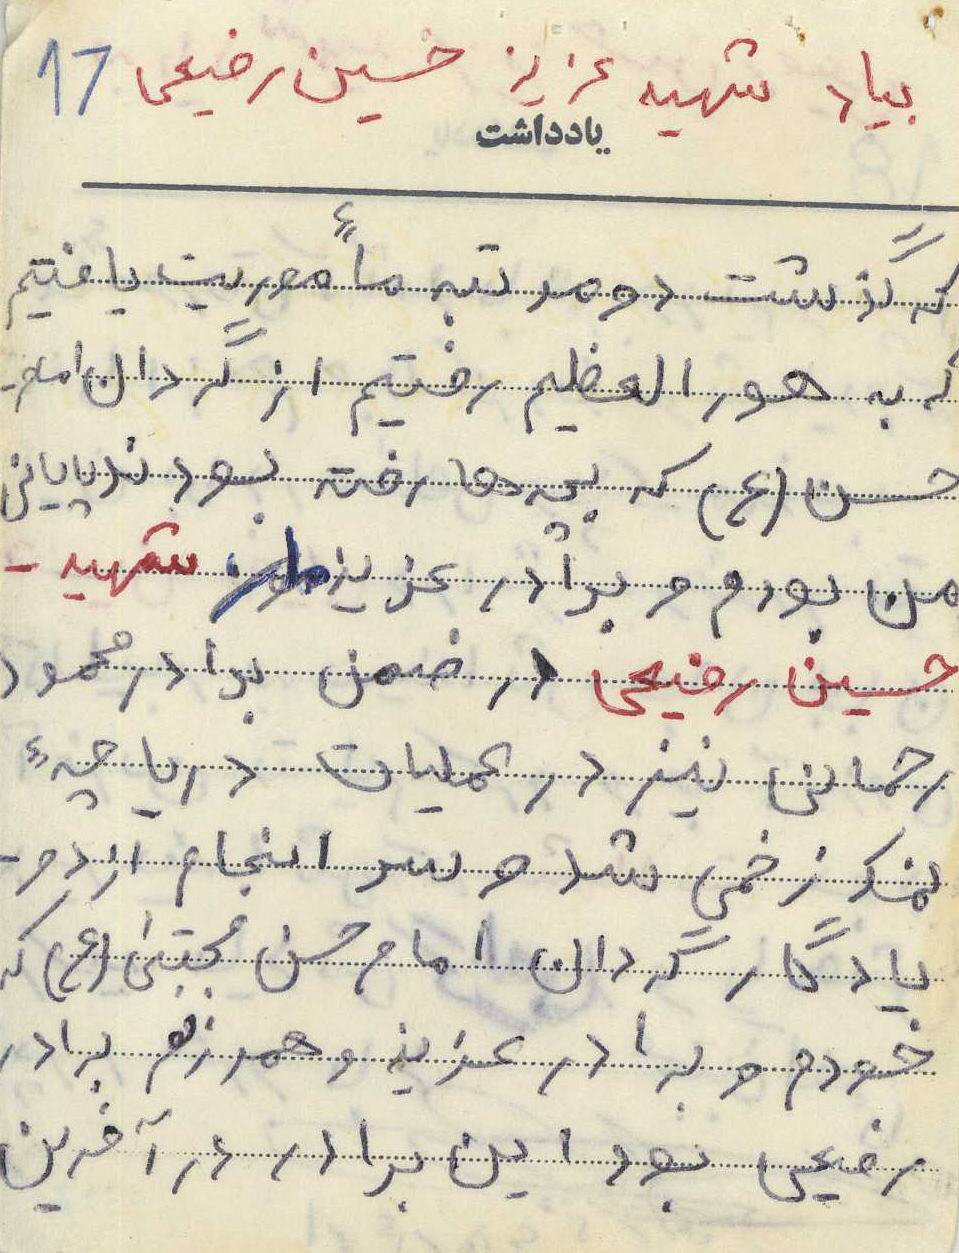 بیاد شهید عزیز حسین رفیعی ۱۶
یادداشت
که گذشت دومرتبه مأموریت یافتیم
که به هورالعظیم رفتیم از گردان امام
حسن (ع) که بچه‌ها رفته بودند پایانی
من بودم و برادر عزیز شهید -
حسین رفیعی در ضمن برادر محمود
رحمانی نیز در عملیات دریاچهٔ
نمک زخمی شد و سرانجام از دو -
یادگار گردان امام حسن مجتبی (ع) که
خودم و برادر عزیز و همرزم برادر
رفیعی بود این برادر در آخرین